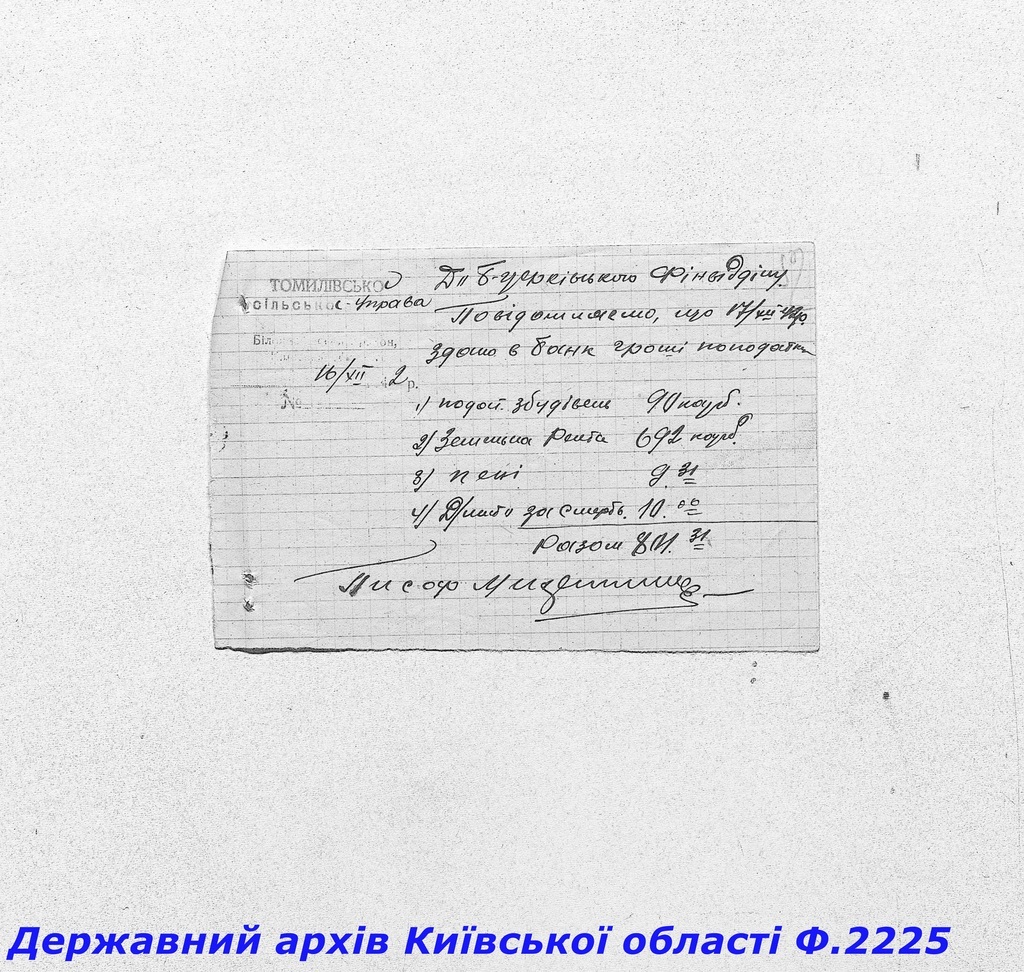 ТОМИЛІВСЬКОЇ
сільської Управа
Біло
16/XII 42 р.
№
Дп Б-Церківського Фінвідділу.
Повідомляємо, що 17/XII-42р.
здано в банк гроші поподатки
1) подат. збудівель 90 карб.
2) Земельна Рента 692 карб.
3) пені 9.31
4) Д/лист за смерть. 10.00
Разом 801.31
Писар
Державний архів Київської області Ф.2225